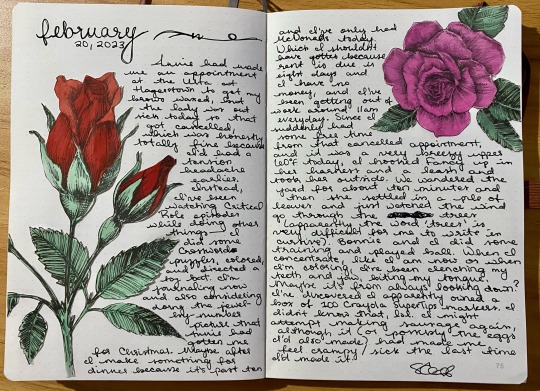 february
20, 2023
Laurie had made
me an appointment
at the Ulta at
Hagerstown to get my
brows waxed, but
the lady was out
sick today so that
got cancelled,
which was honestly
totally fine because
I'd had a
tension
headache
earlier.
Instead,
I've been
watching Critical
Role episodes
while doing other
things - I
did some
crosswords
puzzles, colored,
and directed a
project. I'm
journaling now
and also considering
doing the jewel-
by-number
picture that
had
gotten me
for Christmas. Maybe after
I make something for
dinner because it's past ten
and I've only had
McDonalds today.
Which I shouldn't
have gotten because
rent is due in
eight days and
I have no
money, and I've
been getting out of
work around 11am
everyday. Since I
suddenly had
some free time
from that cancelled appointment,
and it was a very breezy upper
60°F today, I hooked Fancy up in
her harness and a leash and
took her outside. We wandered the
yard for about ten minutes and
then she settled in a pile of
leaves and just watched the wind
go through the trees
(apparently the word 'trees' is
very difficult for me to write in
cursive). Bonnie and I did some
training and played ball. When I
concentrate, like I am now or when
I'm coloring, I've been clenching my
teeth and jaw, biting my tongue.
Maybe it's from always looking down?
I've discovered I apparently owned a
box of 100 Crayola SuperTips markers. I
didn't know that, lol. I might
attempt making sausage again,
although it (or possibly the eggs
I'd also made) had made me
feel crampy/sick the last time
I'd made it.
75